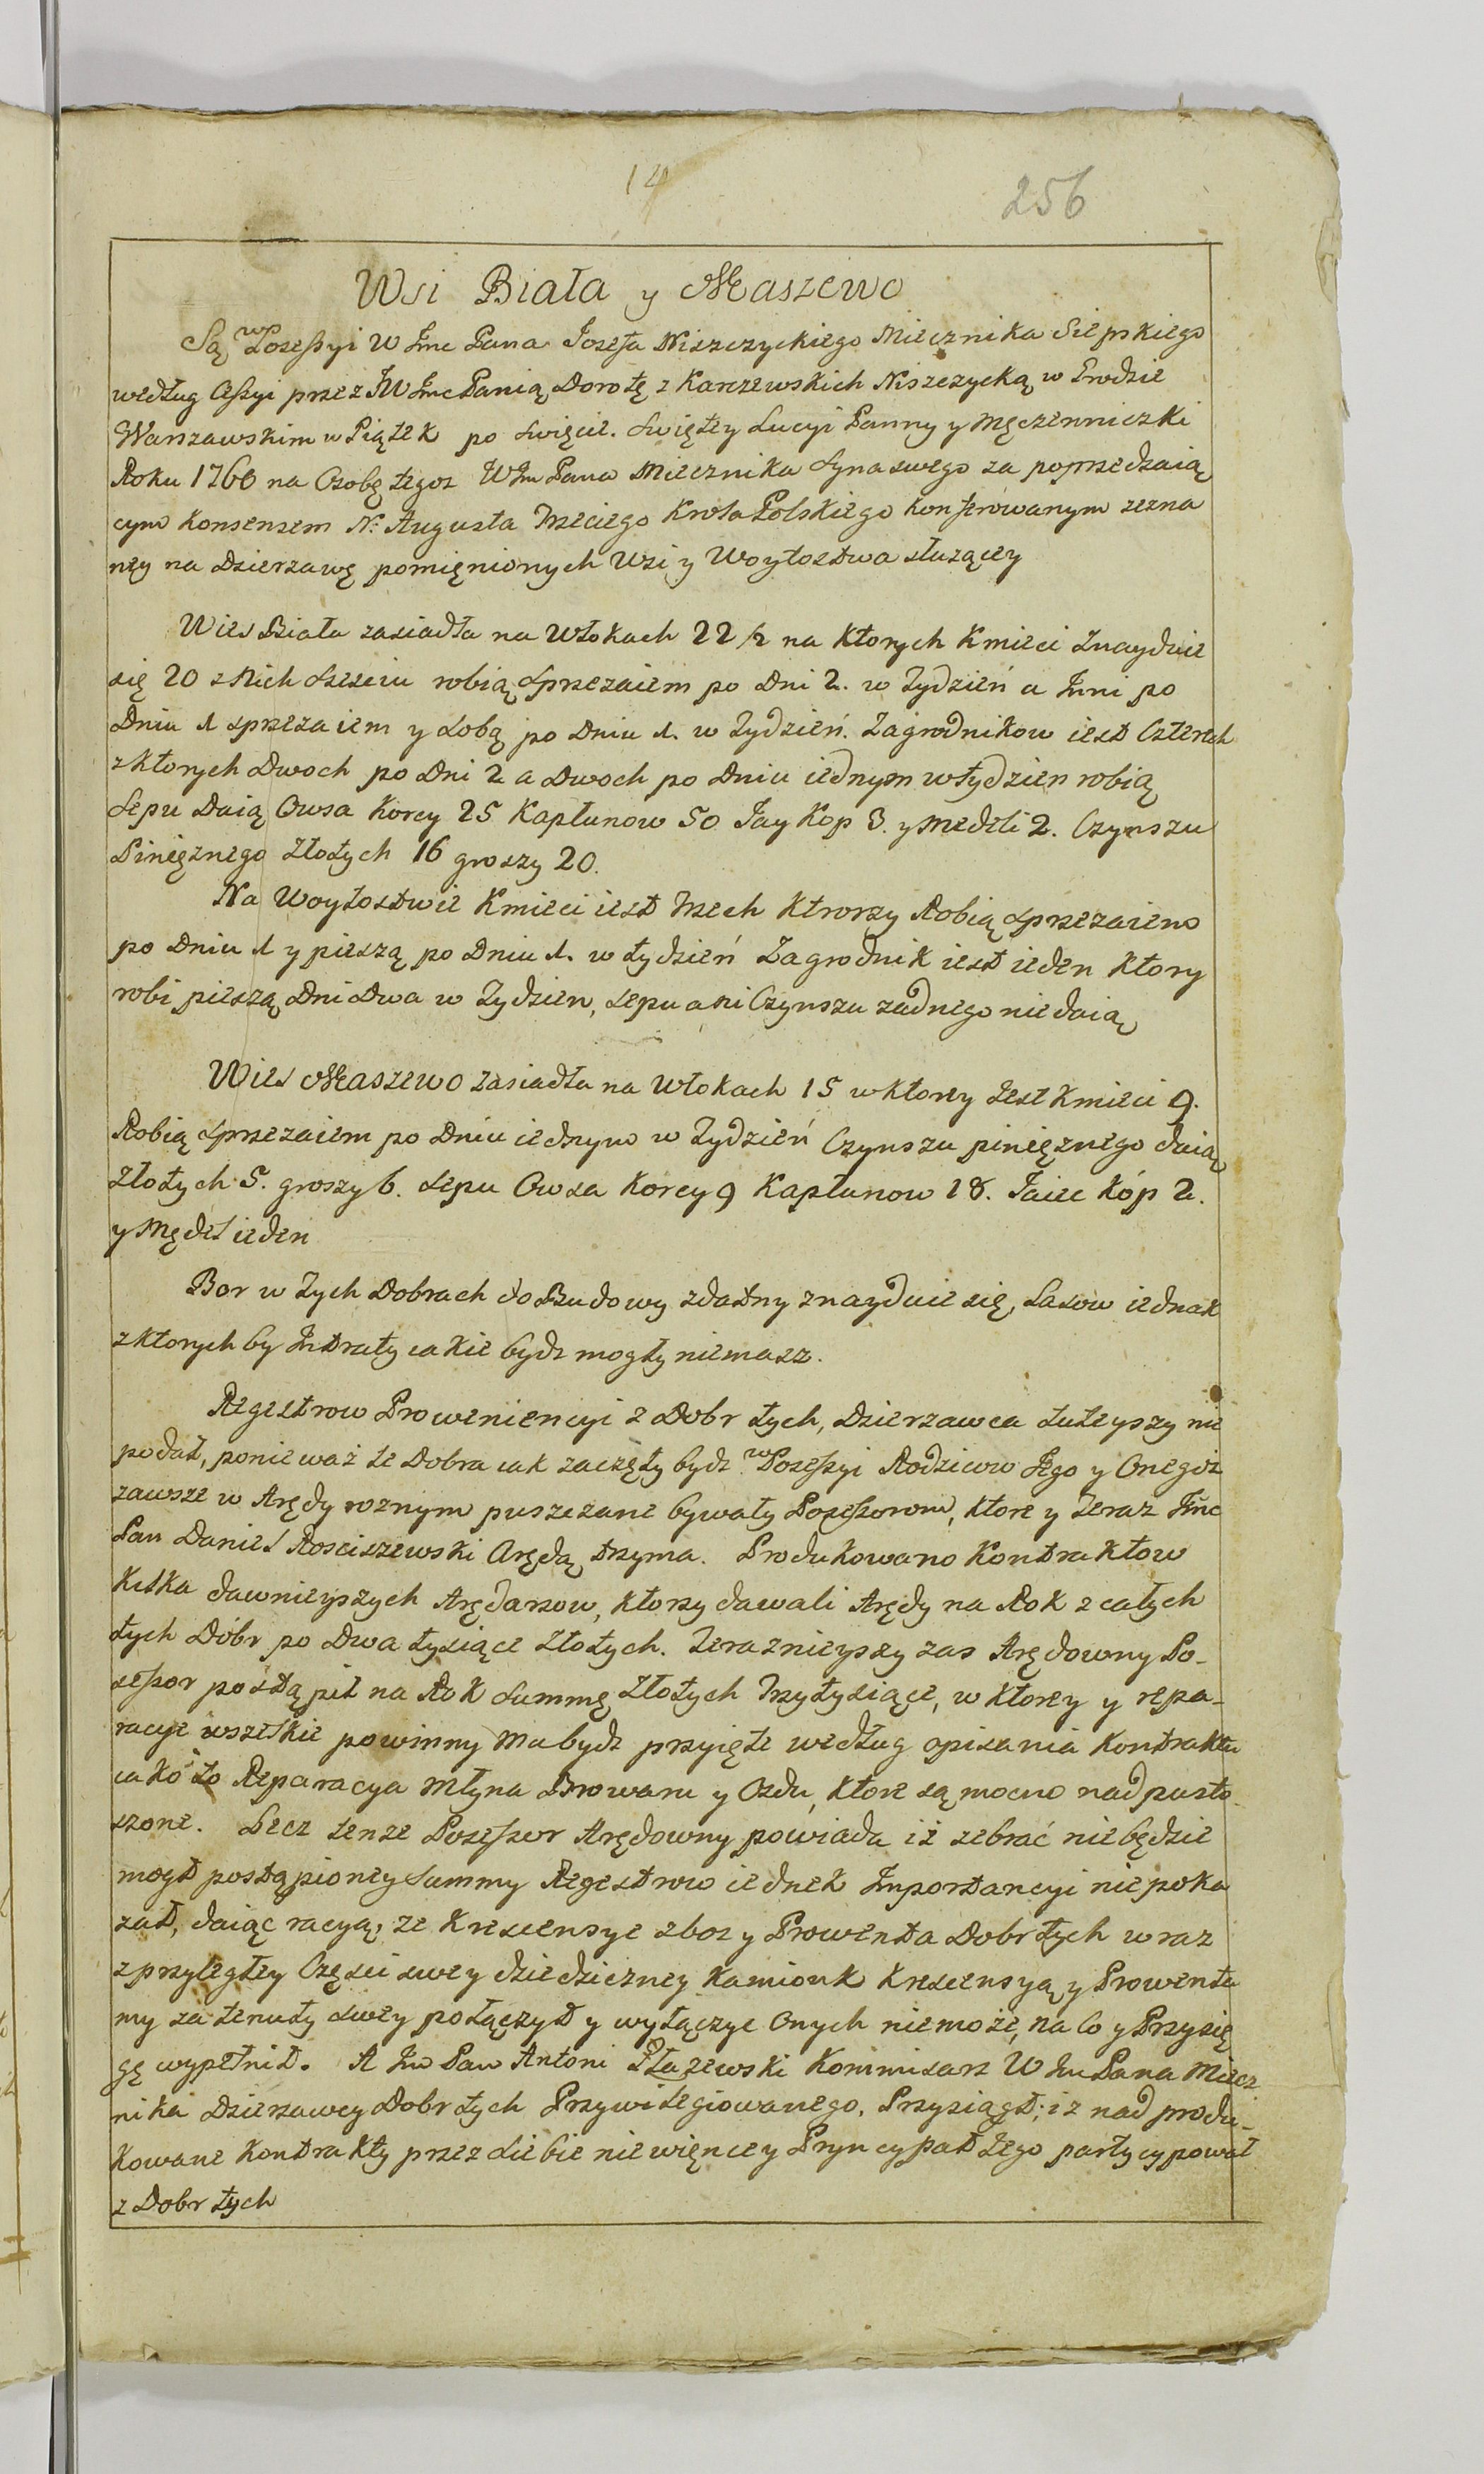 14
256
Wsi Biała y Maszewo
Są w Possessyi W Jmc Pana Jozefa Niszczyckiego Miecznika Sierpskiego
według Cessyi przez JW Jmc Panią Dorotę z Karczewskich Niszczycką w Grodzie
Warszawskim w Piątek po święcie Swiętey Lucyi Panny y Męczenniczki
Roku 1760 na Osobę tegoz WJm Pana Miecznika Syna swego za poprzedzaią
cym Konsensem N: Augusta Trzeciego Krola Polskiego konferowanym zezna
ney na Dzierzawę pomięnionych Wsi y Woytostwa słuzącey
Wies Biała zasiadła na Włokach 22/2 na ktorych Kmieci Znayduie
się 20 z Nich Szesciu robią Sprzezaiem po Dni 2. w Tydzień a Inni po
Dniu 1 sprzezaiem y Sobą po Dniu 1. w Tydzień. Zagrodnikow iest Czterech
z ktorych Dwoch po Dni 2 a Dwoch po Dniu iednym w tydzien robią
Sepu Daią Owsa Korcy 25 Kapłunow 50 Jay Kop 3. y Medeli 2. Czynszu
Piniężnego Złotych 16 groszy 20.
Na Woytostwie Kmieci iest Trzech Ktrorzy Robią Sprzezaiem
po Dniu 1 y pieszą po Dniu 1. w tydzień Zagrodnik iest ieden Ktory
robi pieszą Dni Dwa w Tydzien, Sepu ani Czynszu zadnego nie daią
Wies Maszewo zasiadła na Włokach 15 w ktorey Jest Kmieci 9.
Robią Sprzezaiem po Dniu iednym w Tydzień Czynszu piniężnego daią
Złotych 5. groszy 6. Sepu Owsa Korcy 9 Kapłunow 18. Jaiec kóp 2.
y Mędel ieden
Bor w Tych Dobrach do Budowy zdatny znayduie się, Lasow iednak
z ktorych by Intraty iakie bydz mogły niemasz.
Regestrow Prowenięncyi z Dobr tych, Dzierzawca tuteyszy nie
podał, ponieważ te Dobra iak zaczęły bydz w Possessyi Rodzicow Jego y Onegoż
zawsze w Arędy roznym puszczane bywały Possessorom, ktore y Teraz Jmc
Pan Daniel Rosciszewski Arędą trzyma. Produkowano Kontraktow
Kilka dawnieyszych Arędarzow, ktorzy dawali Arędy na Rok z całych
tych Dóbr po Dwa tysiące Złotych. Terazniejszy zas Arędowny Po-
sessor postąpił na Rok Summę Złotych Trzytysiące, w ktorey y repa-
racye wszelkie powinny Mu bydz przyięte według opisania Kontraktu
iako to Reparacya Młyna Browaru y Ozdu, ktore są mocno nadpusto
szone. Lecz tenze Possessor Arędowny powiada iż zebrać nie będzie
mogł postąpioney Summy Regestrow iednek Importancyi nie poka
zał, daiąc racyą, ze Krescensye zboz y Prowenta Dobr tych wraz
z przyległey Częsci swey dziedziczney Kamionk Krescensyą y Prowenta
my za tenuty swey połączył y wyłączyc Onych niemoże, na Co y Przysię
gę wypełnił. A Jm Pan Antoni Płazewski Kommisarz W Jm Pana Miecz
nika Dzierzawcy Dobr tych Przywilegiowanego, Przysiągł; iz nad produ-
kowane Kontrakty przez siebie niewięncey Pryncypał Jego partycypował
z Dobr tych